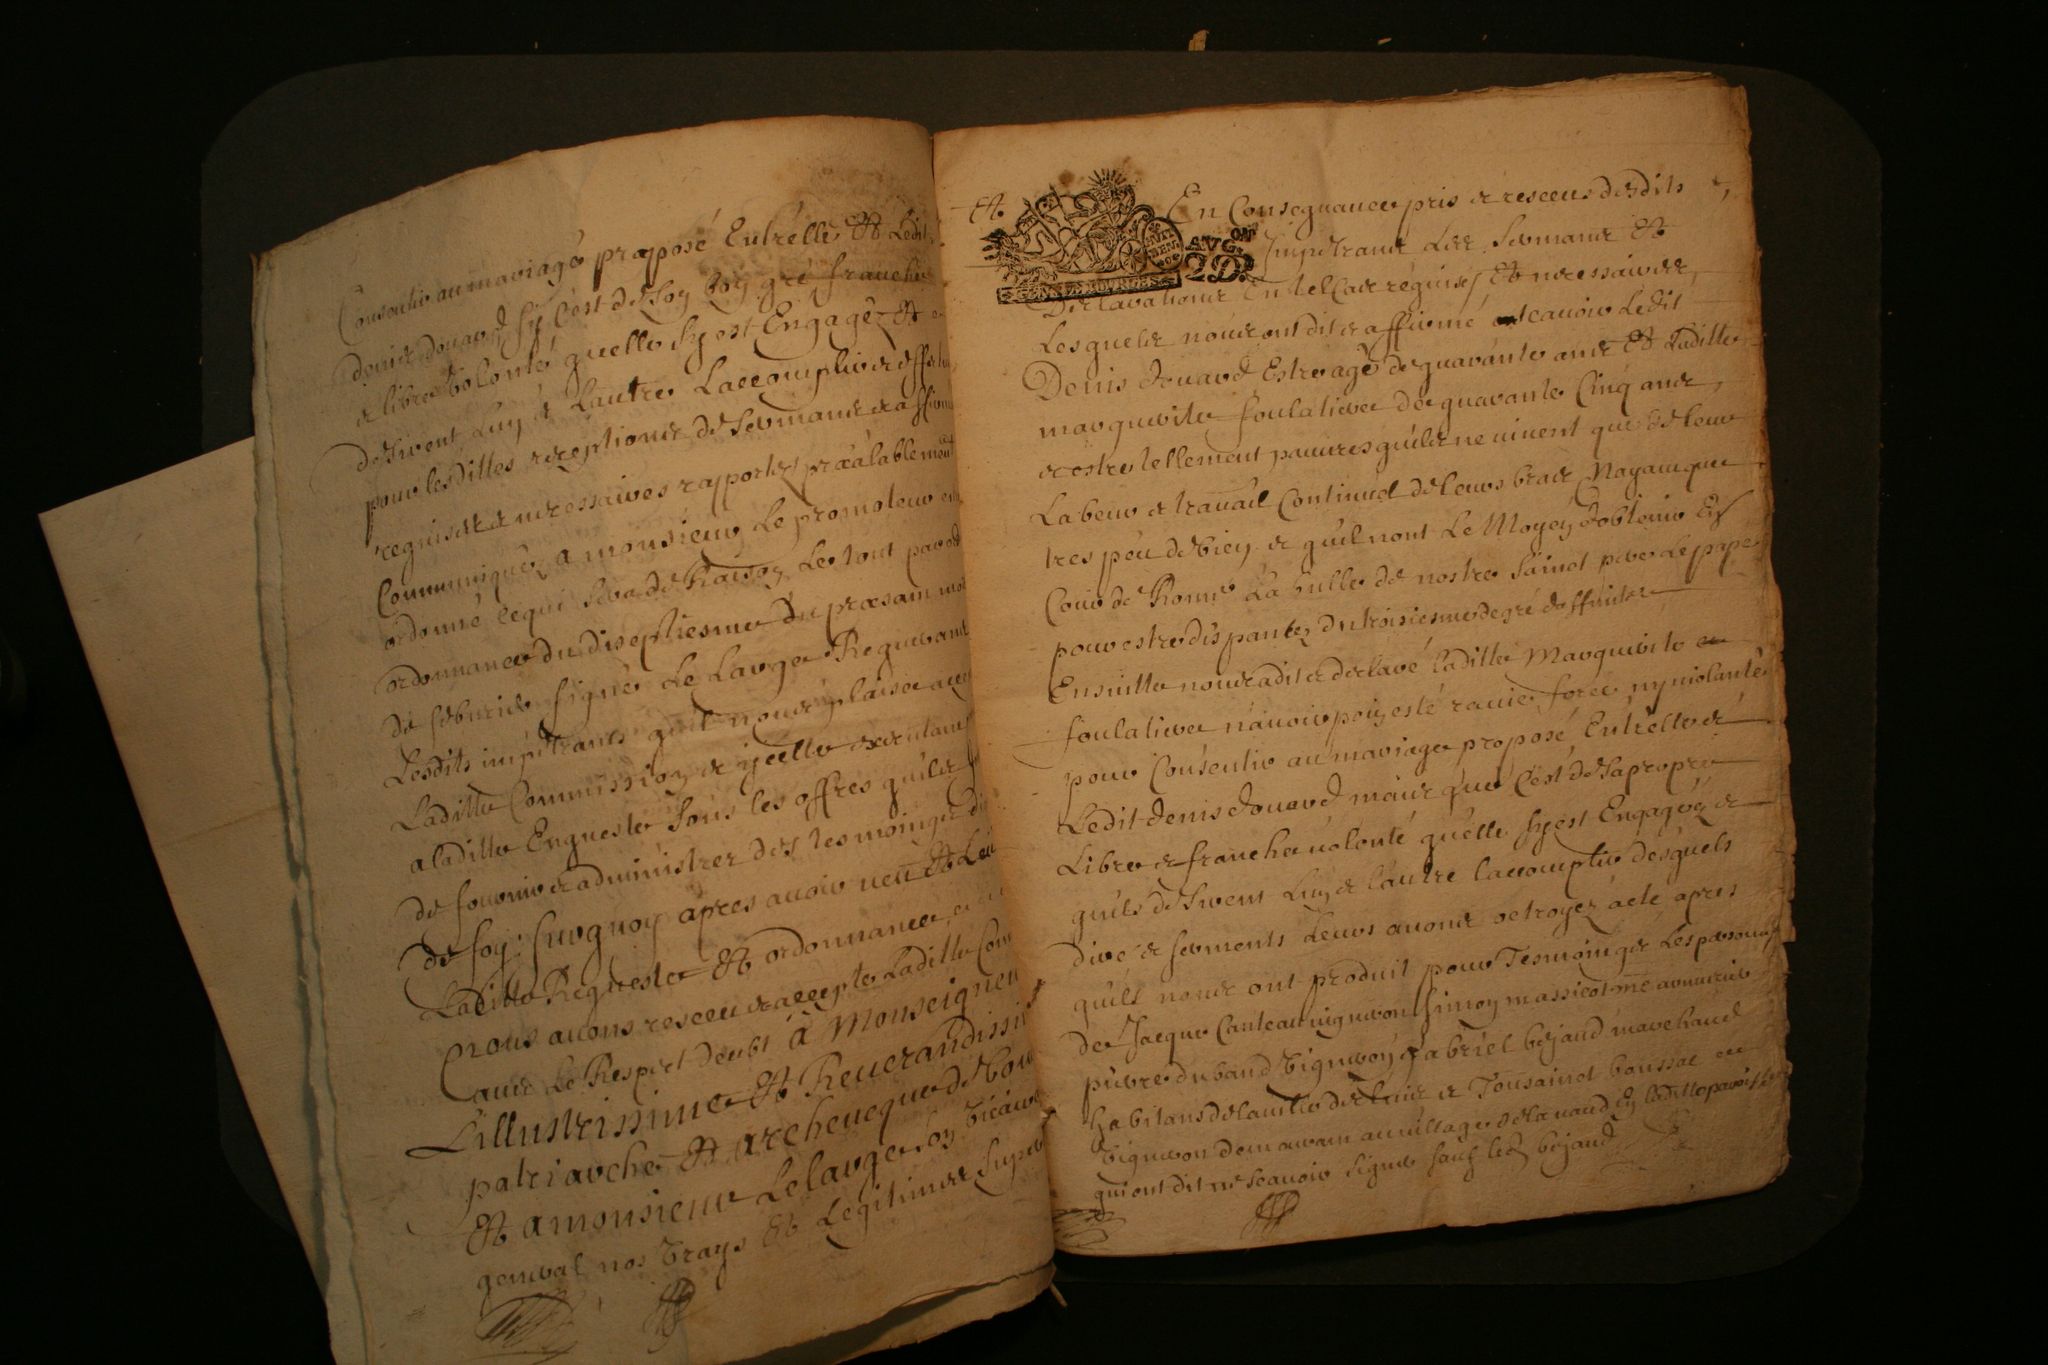 Consentir au mariage proposé Entrelle Et Ledit
denis douard sy C'est de son bon gré franche
et libre volonté quelle sy est Engagée Et
desirent Luy et Lautre Laccomplir et effectuer
pour lesdittes receptions de sermans et affirma
requises et necessaires rapportez præalablement
Communiquéz a monsieur Le promoteur
ordonné ce qui sera de Raison Le tout par
ordonnance du diseptiesme du præsam mois
de febvrier signé Le Large Requerant
Lesdits impetrans quil nous plaise
Laditte Commission et icelle executant
a laditte Enqueste sous les offres quils
de fournir et administrer des tesmoings
de foy: surquoy apres auoir ueu Et Leu
Laditte Requeste Et ordonnance
nous auons resceu et accepté Laditte Com
auec Le Respect deubt à Monseigneur
L'illustrissime Et Reuerandissime
patriarche Et archeuecque de Bourges
Et a monsieur Lelarge son vicaire
general nos vrays Et Legitimes super
Et En Consequance pris et resceus desdits
GEN DE BOURGES
AVG.on
2D.
Impetrans Les Sermans Et
Declarations En tel Cas requises Et necessaires
Lesquels nous ont dit et affirmé scauoir Ledit
Denis douard Estre agé de quarante ans Et Laditte
marguerite foulatiere de quarante Cinq ans,
et estre tellement pauures quils ne uiuent que de leur
Labeur et trauail Continuel de leurs bras Nayans que
tres peu de bien et quil nont Le Moyen dobtenir En
Cour de Rome La bulle de nostre Sainct pere Le pape
pour estre dispansez du troisiesme degré daffinité
Ensuitte nous a dit et declaré laditte Marguerite
foulatiere n'auoir poin esté rauie, forcé, ny uiolanté
pour Consentir au mariage proposé Entrelle et
Ledit denis douard mais que C'est de sa propre
Libre et franche uolonté quelle sy est Engagée et
quils desirent Luy et lautre laccomplir desquels
dire et serments Leurs auons octroyez acte apres
quils nous ont produit pour Tesmoings Les personnes
de Jacque Canteau uigneron Simon massicot me armurier
pierre duband vigneron gabriel bejaud marchand
habitans de la uille de et Tousainct boussac
vigneron demeurant au uillage de la naud En laditte paroisse
qui ont dit ne scauoir signer sauf led bejaud